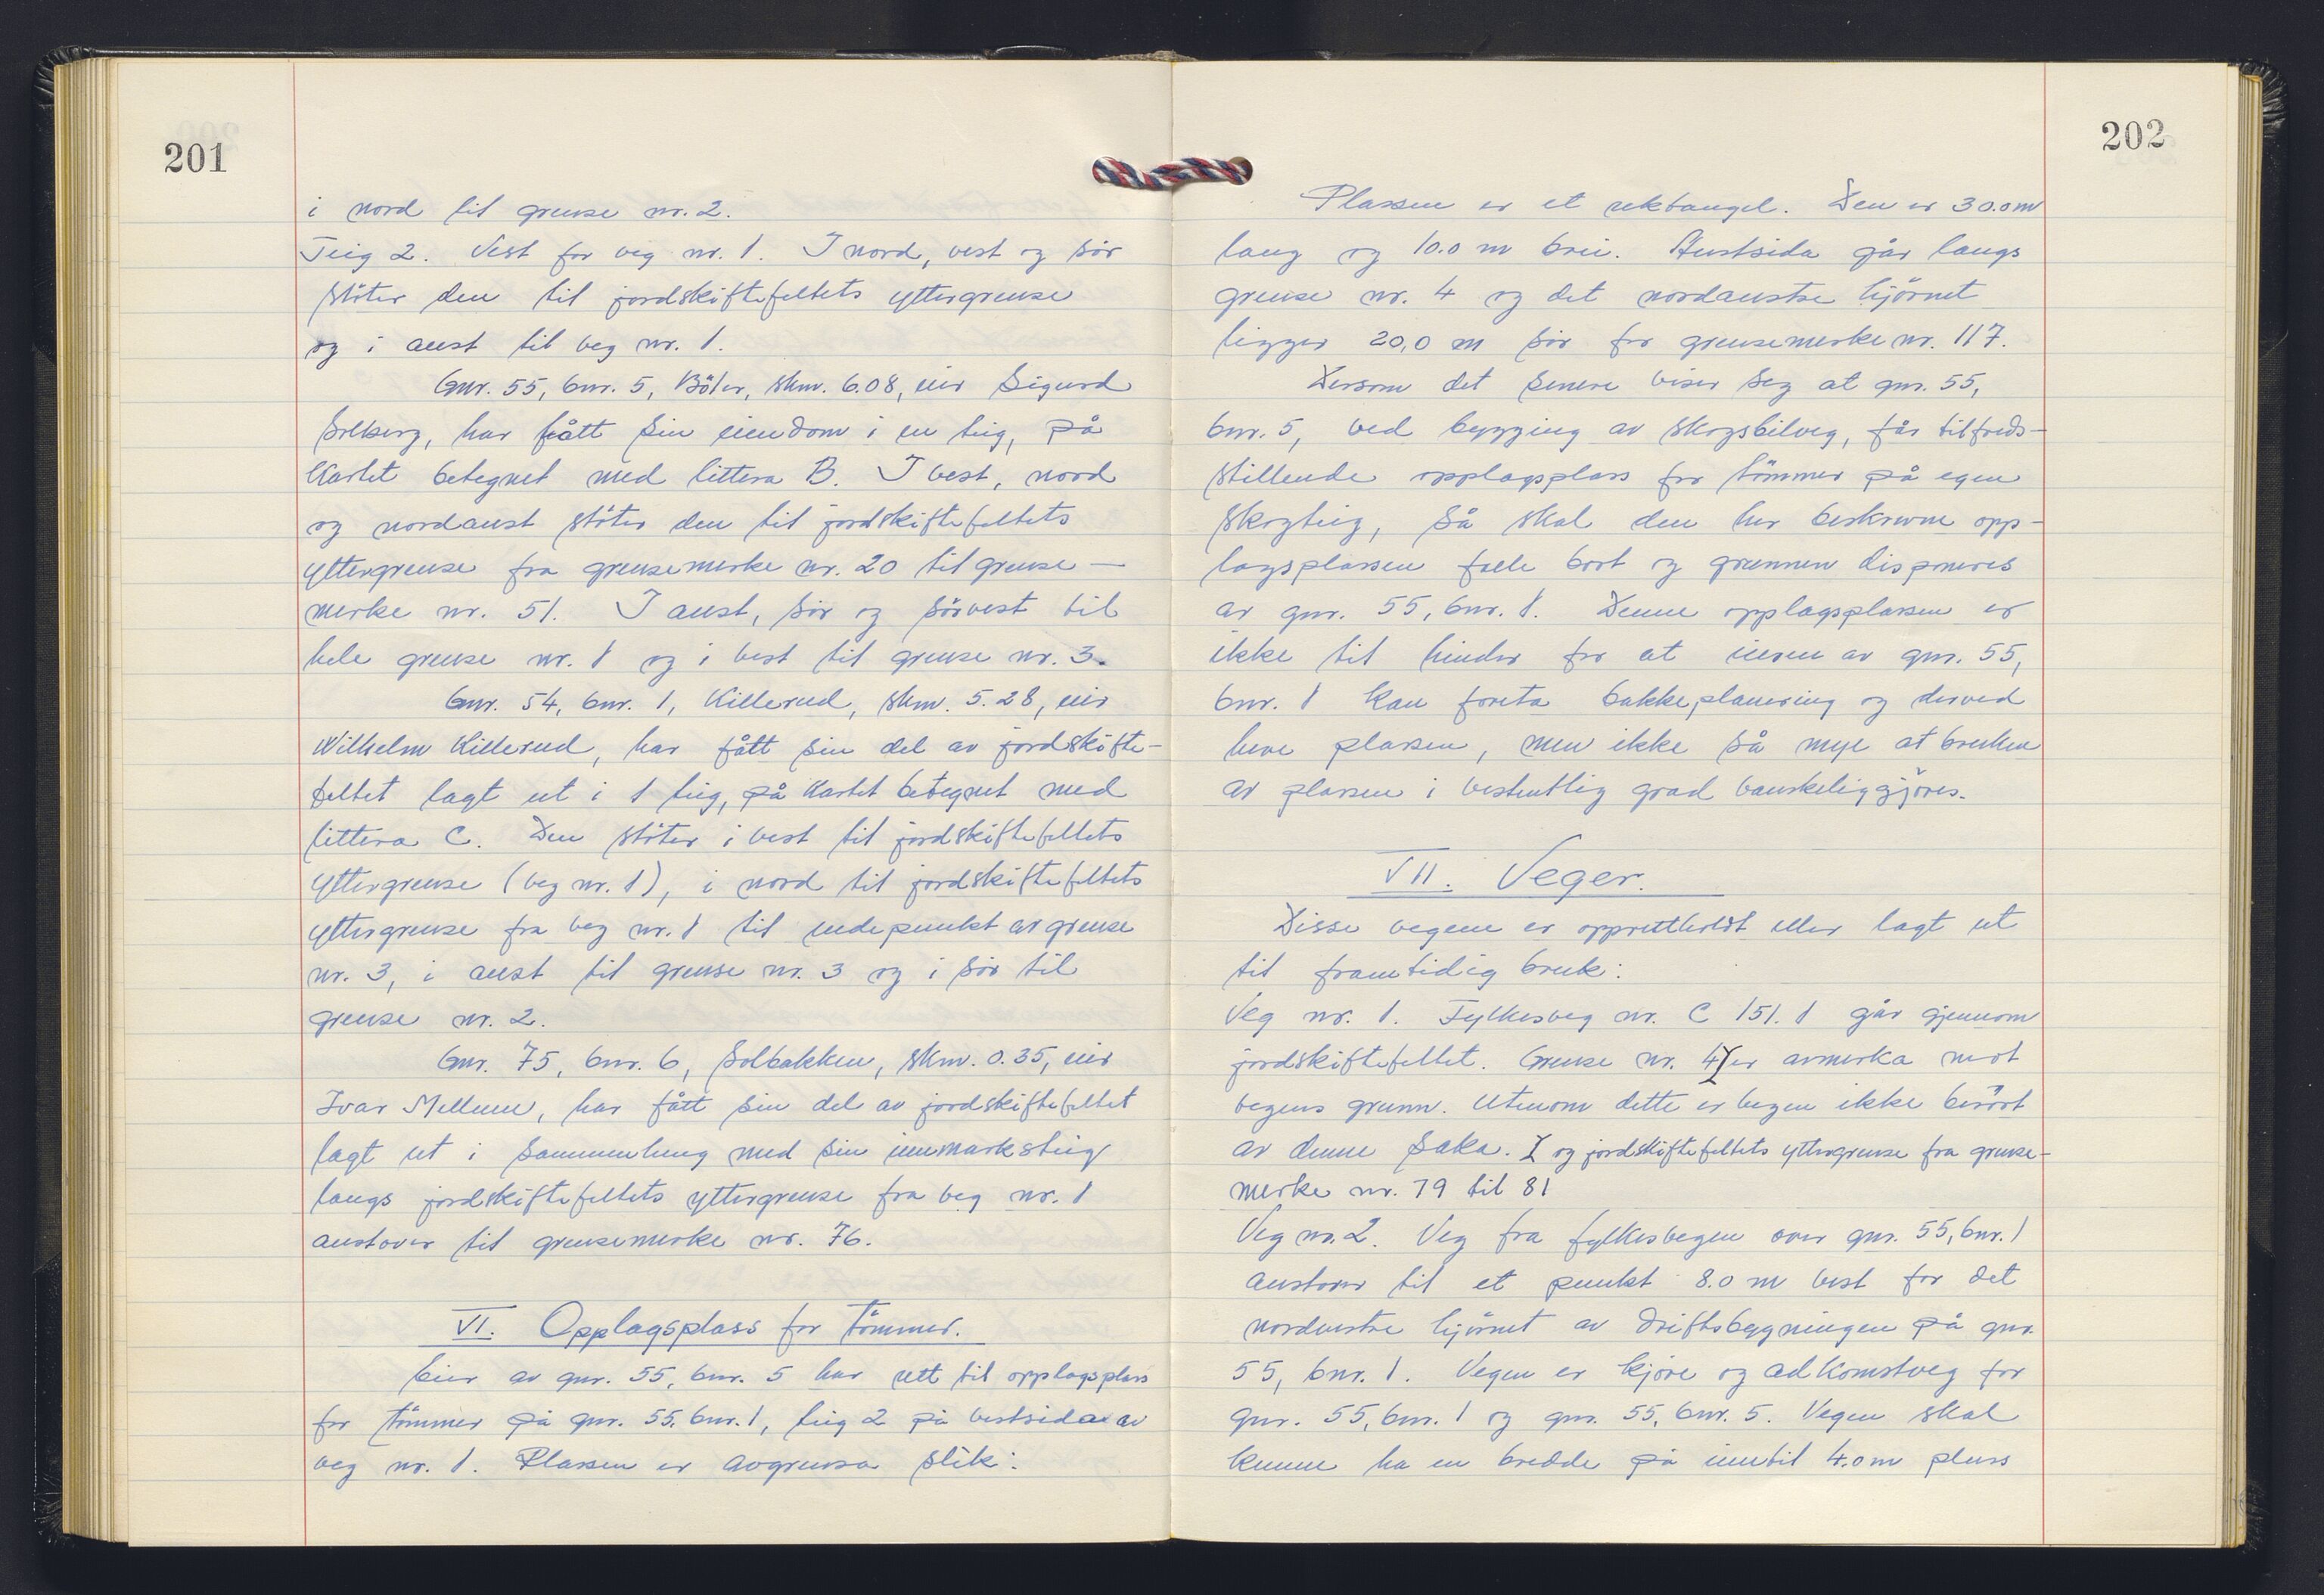 201
i nord til grense nr. 2.
Teig 2. Vest for veg nr. 1. I nord, vest og sör
stöter den til jordskiftefeltets yttergrense
og i aust til veg nr. 1.
Gnr. 55, bnr. 5, Böler, skm. 6.08, eier Sigurd
Solberg, har fått sin eiendom i en teig, på
kartet betegnet med littera B. I vest, nord
og nordaust stöter den til jordskiftefeltets
yttergrense fra grensemerke nr. 20 til grense-
merke nr. 51. I aust, sör og sörvest til
hele grense nr. 1 og i vest til grense nr. 3.
Gnr. 54, bnr. 1, Killerud, skm. 5.28, eier
Wilhelm Killerud, har fått sin del av jordskifte-
feltet lagt ut i 1 teig, på kartet betegnet med
littera C. Den stöter i vest til jordskiftefeltets
yttergrense (veg nr. 1), i nord til jordskiftefeltets
yttergrense fra veg nr. 1 til endepunkt av grense
nr. 3, i aust til grense nr. 3 og i sör til
grense nr. 2.
Gnr. 75, bnr. 6, Solbakken, skm. 0.35, eier
Ivar Mellum, har fått sin del av jordskiftefeltet
lagt ut i sammenheng med sin innmarksteig
langs jordskiftefeltets yttergrense fra veg nr. 1
austover til grensemerke nr. 76.
VI. Opplagsplass for tömmer.
Eier av gnr. 55, bnr. 5 har rett til opplagsplass
for tömmer på gnr. 55, bnr. 1, teig 2 på vestsida av
veg nr. 1. Plassen er avgrensa slik:
202
Plassen er et rektangel. Den er 30.0 m
lang og 10.0 m brei. Austsida går langs
grense nr. 4 og det nordaustre hjörnet
ligger 20,0 m sör for grensemerke nr. 117.
Dersom det senere viser seg at gnr. 55,
bnr. 5, ved bygging av skogsbilveg, får tilfreds-
stillende opplagsplass for tömmer på egen
skogteig, så skal den her beskrevne opp-
lagsplassen falle bort og grunnen disponeres
av gnr. 55, bnr. 1. Denne opplagsplassen er
ikke til hinder for at eieren av gnr. 55,
bnr. 1 kan foreta bakkeplanering og derved
heve plassen, men ikke så mye at bruken
av plassen i vesentlig grad vanskeliggjöres.
VII. Veger.
Disse vegene er opprettholdt eller lagt ut
til framtidig bruk:
Veg nr. 1. Fylkesveg nr. C 151.1 går gjennom
jordskiftefeltet. Grense nr. 4 er avmerka mot
vegens grunn. Utenom dette er vegen ikke berört
av denne saka. og jordskiftefeltets yttergrense fra grense-
merke nr. 79 til 81
Veg nr. 2. Veg fra fylkesvegen over gnr. 55, bnr. 1
austover til et punkt 8.0 m vest for det
nordvestre hjörnet av driftsbygningen på gnr.
55, bnr. 1. Vegen er kjöre og adkomstveg for
gnr. 55, bnr. 1 og gnr. 55, bnr. 5. Vegen skal
kunne ha en bredde på inntil 4.0 m pluss